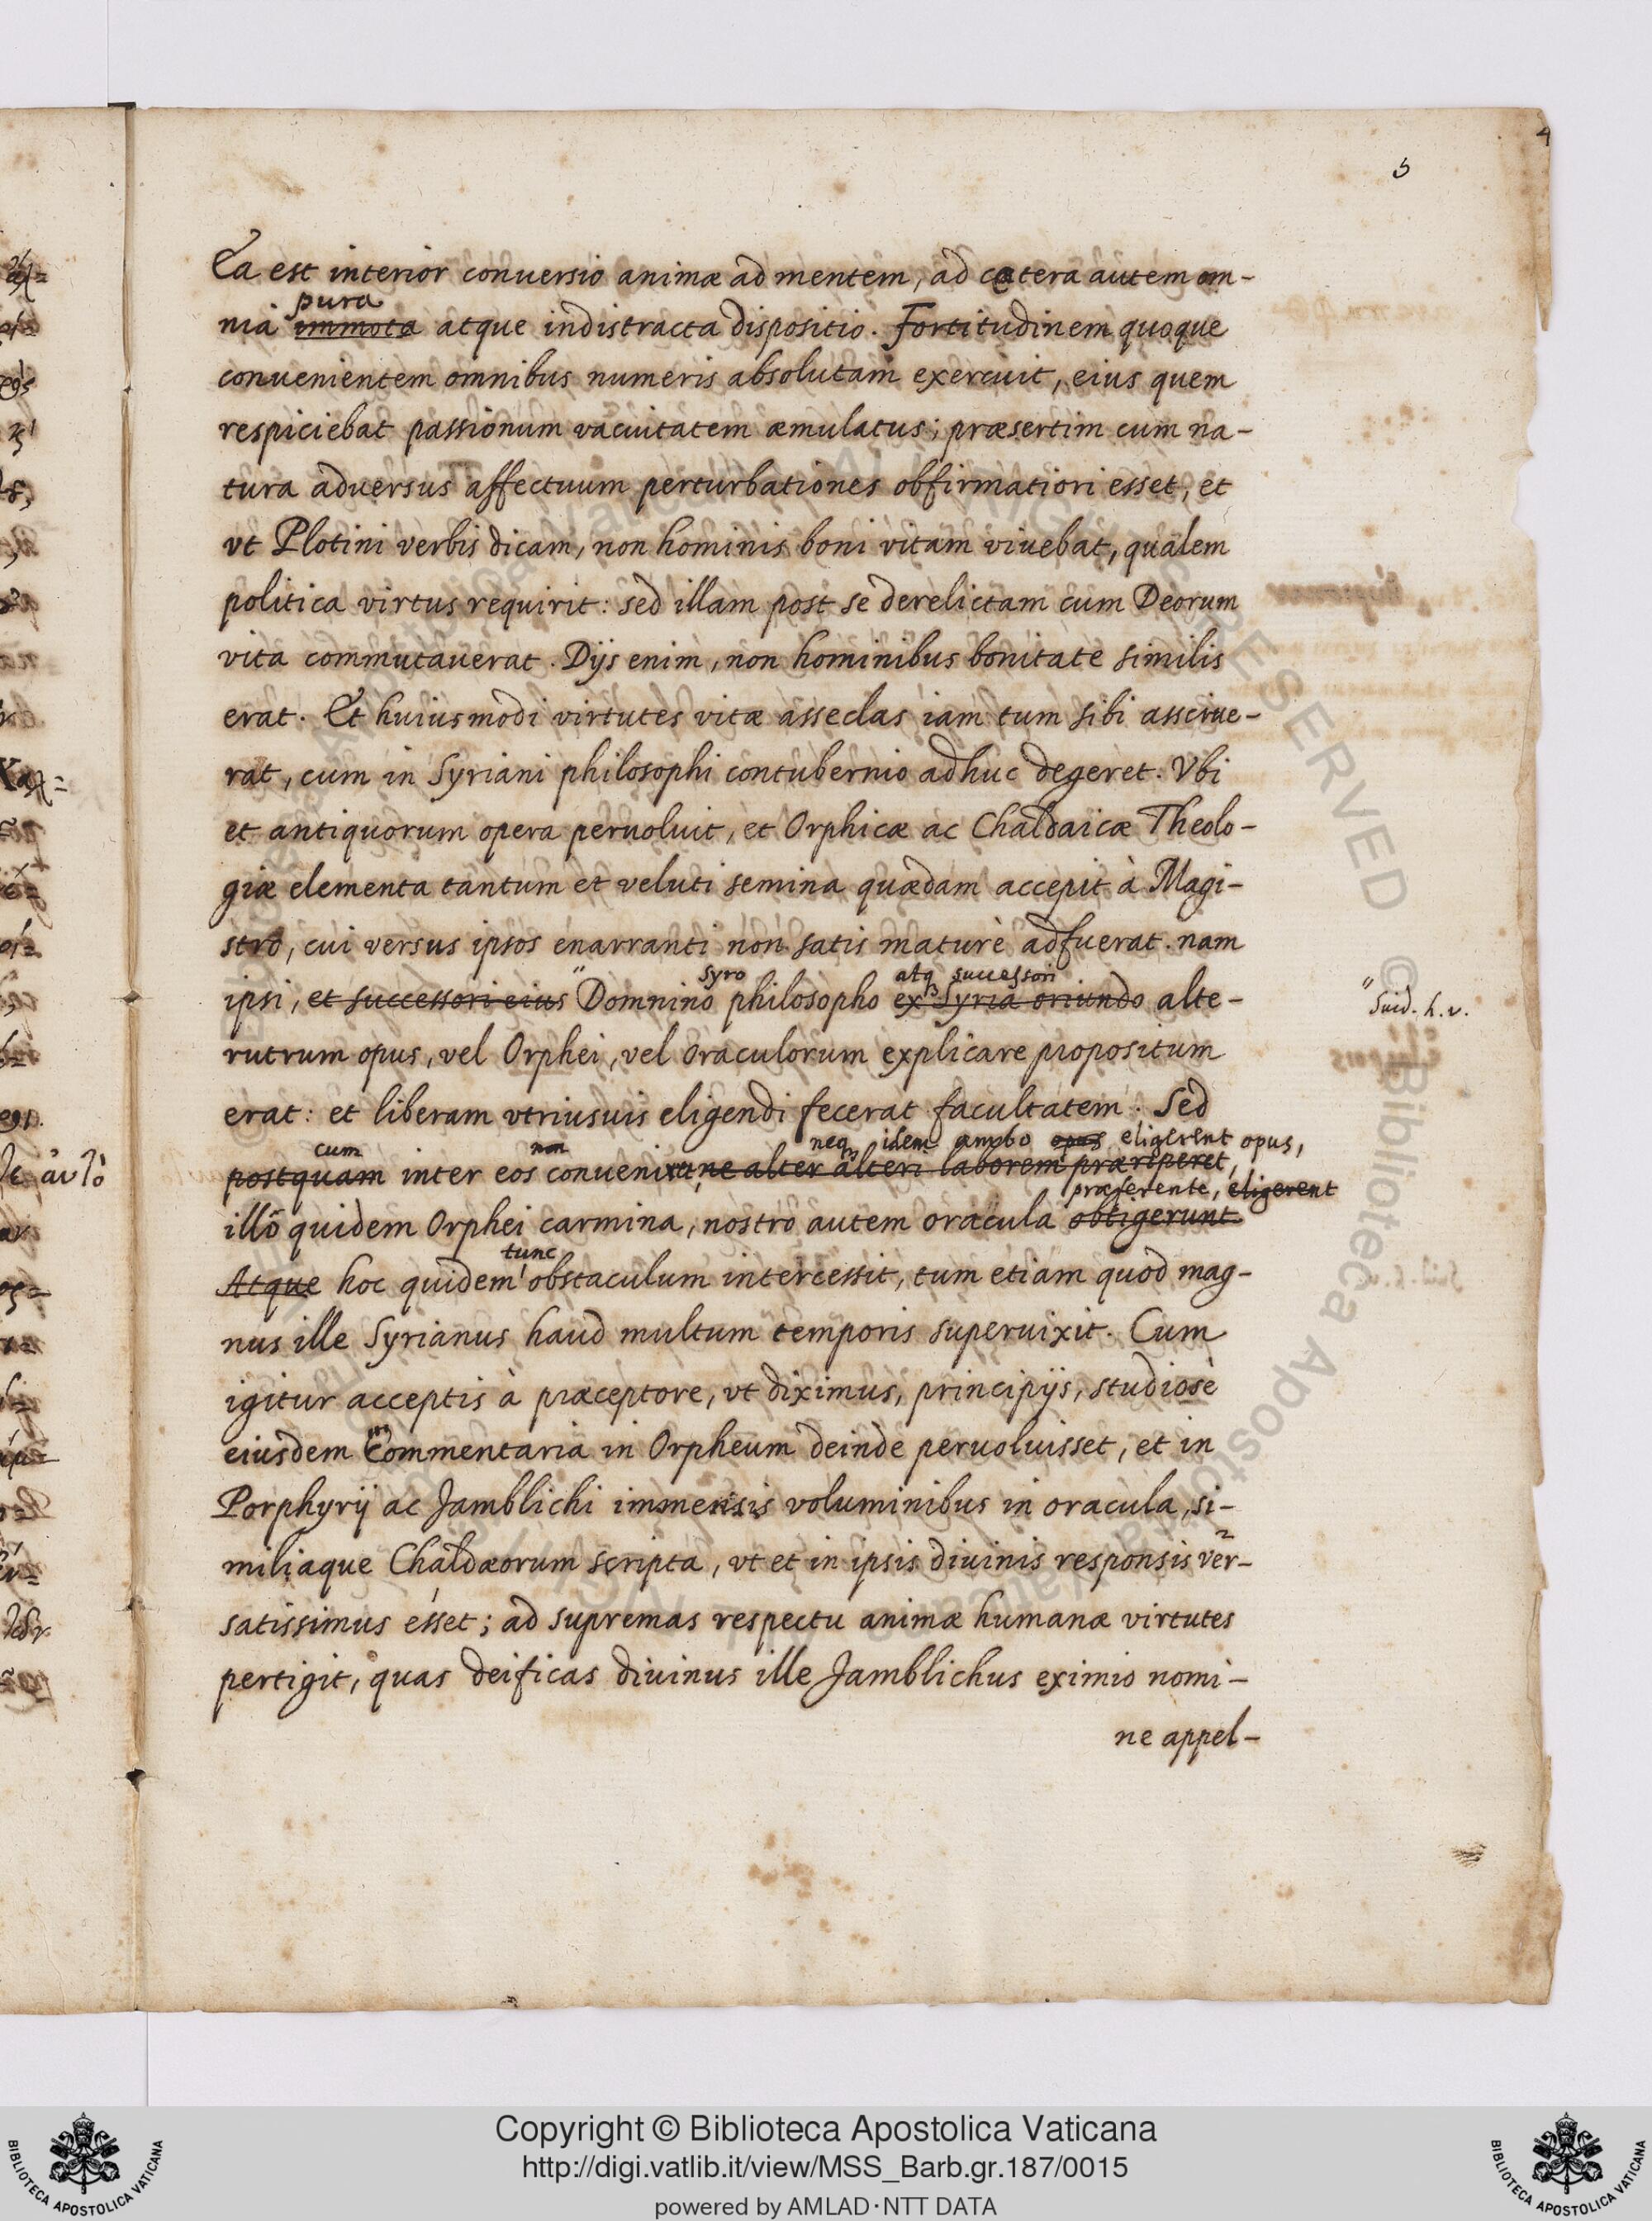 4
5
Ea est interior conuersio animæ ad mentem, ad cætera autem om-
pura
nia immota atque indistracta dispositio. Fortitudinem quoque
conuenientem omnibus numeris absolutam exercuit, eius quem
respiciebat passionum vacuitatem æmulatus; præsertim cum na-
tura aduersus affectuum perturbationes obfirmatiori esset, et
vt Plotini verbis dicam, non hominis boni vitam viuebat, qualem
politica virtus requirit: sed illam post se derelictam cum Deorum
vita commutauerat. Dijs enim, non hominibus bonitate similis
erat. Et huiusmodi virtutes vitæ asseclas iam tum sibi asciue-
rat, cum in Syriani philosophi contubernio adhuc degeret. Vbi
et antiquorum opera peruoluit, et Orphicæ ac Chaldaicæ Theolo-
giæ elementa tantum et veluti semina quædam accepit à Magi-
stro, cui versus ipsos enarranti non satis maturè adfuerat. nam
Syro atq; successori
ipsi, et successori eius " Domnino philosopho ex Syria oriundo alte-
" Suid. h. v.
rutrum opus, vel Orphei, vel oraculorum explicare propositum
erat: et liberam vtriusuis eligendi fecerat facultatem. Sed
cum non neq; idem ambo opus eligerent opus,
postquam inter eos conuenixet, ne alter alteri laborem præriperet,
præferente, eligerent
illo quidem Orphei carmina, nostro autem oracula obtigerunt
tunc
Atque hoc quidem obstaculum intercessit, tum etiam quod mag-
nus ille Syrianus haud multum temporis superuixit. Cum
igitur acceptis à præceptore, vt diximus, principijs, studiosè
eiusdem Commentaria in Orpheum deinde peruoluisset, et in
Porphyrij ac Jamblichi immensis voluminibus in oracula, si-
miliaque Chaldæorum scripta, vt et in ipsis diuinis responsis ver-
satissimus esset; ad supremas respectu animæ humanæ virtutes
pertigit, quas deificas diuinus ille Jamblichus eximio nomi-
ne appel-
Copyright © Biblioteca Apostolica Vaticana
http://digi.vatlib.it/view/MSS_Barb.gr.187/0015
powered by AMLAD·NTT DATA
BIBLIOTECA APOSTOLICA VATICANA
BIBLIOTECA APOSTOLICA VATICANA